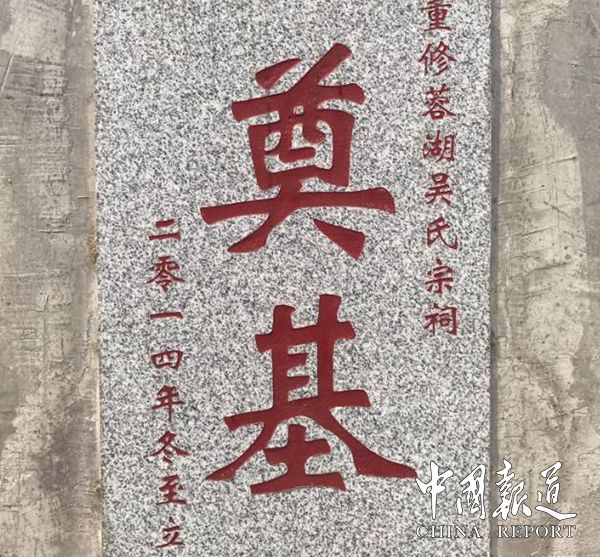 重修蓉湖吴氏宗祠
奠基
二零一四年冬至立
中国报道
CHINA REPORT